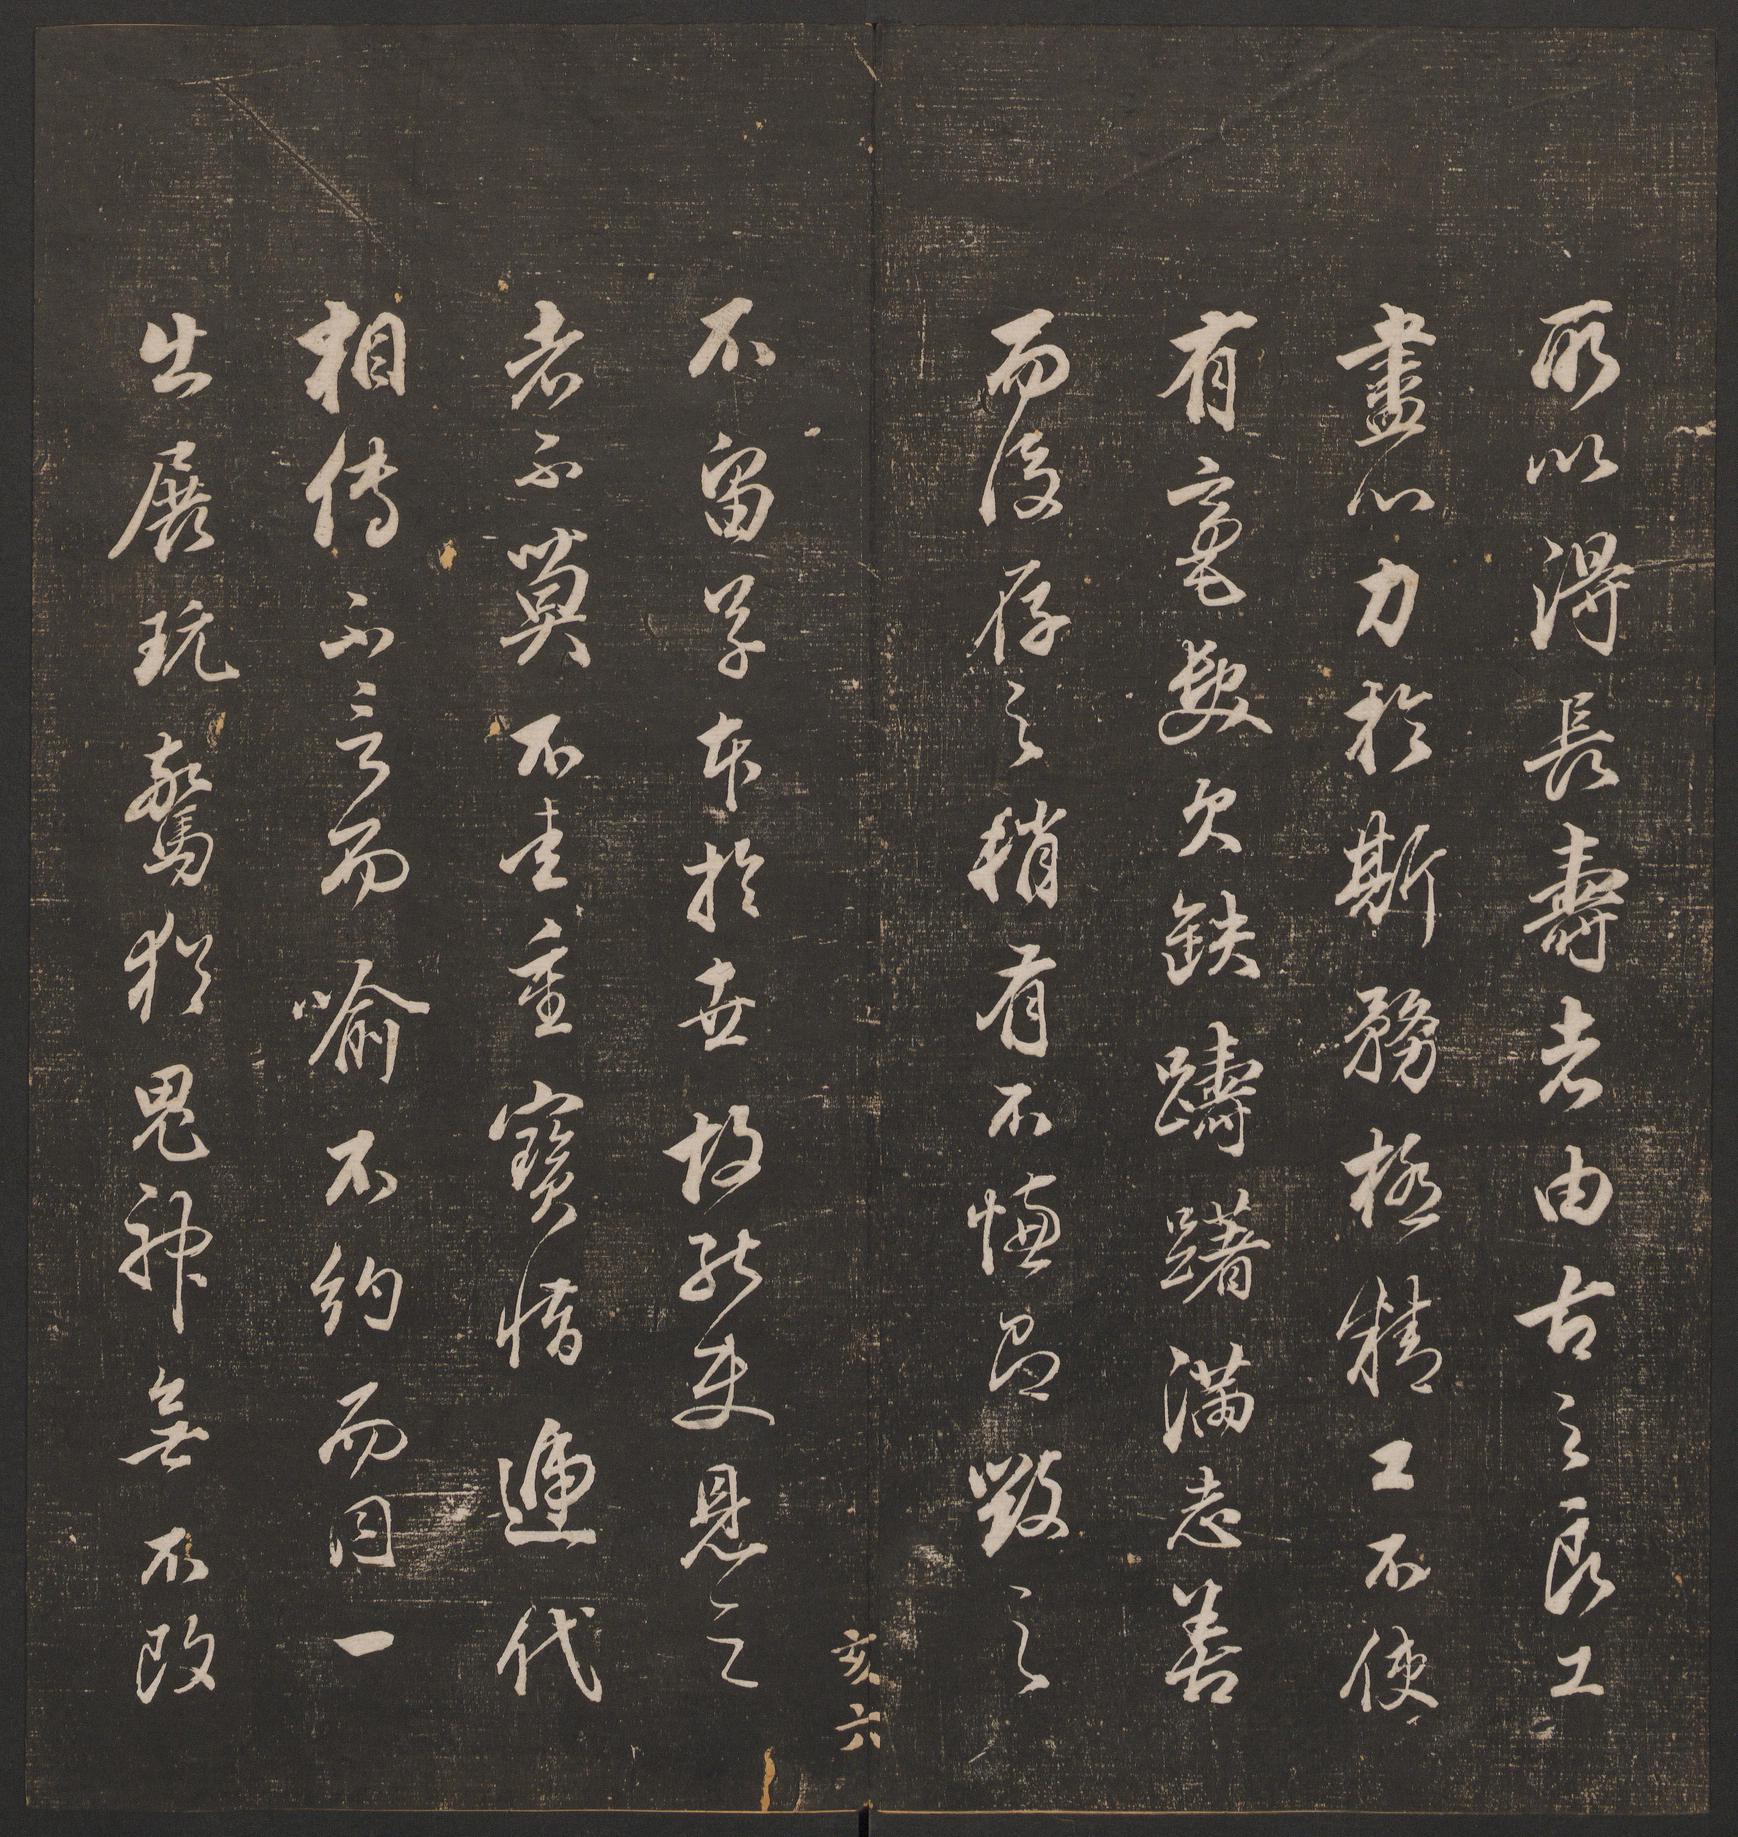 所以得長壽者由古之良工
盡心力於斯務極精工不使
有毫髮欠缺躊躇滿志善
而後存之稍有不慊即毀之
不留草本於世故能使見之
者不莫不圭重寶惜遞代
相傳不言而喻不約而同一
出展玩驚猶鬼神無不改
亥六